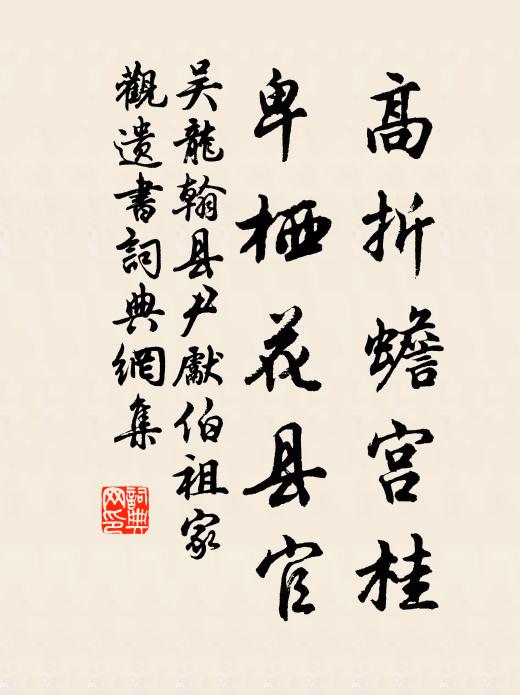 高折蟾宫桂
卑栖花县官
吴龍翰县尹獻伯祖家
觀遗書詞典網集
詞典网印